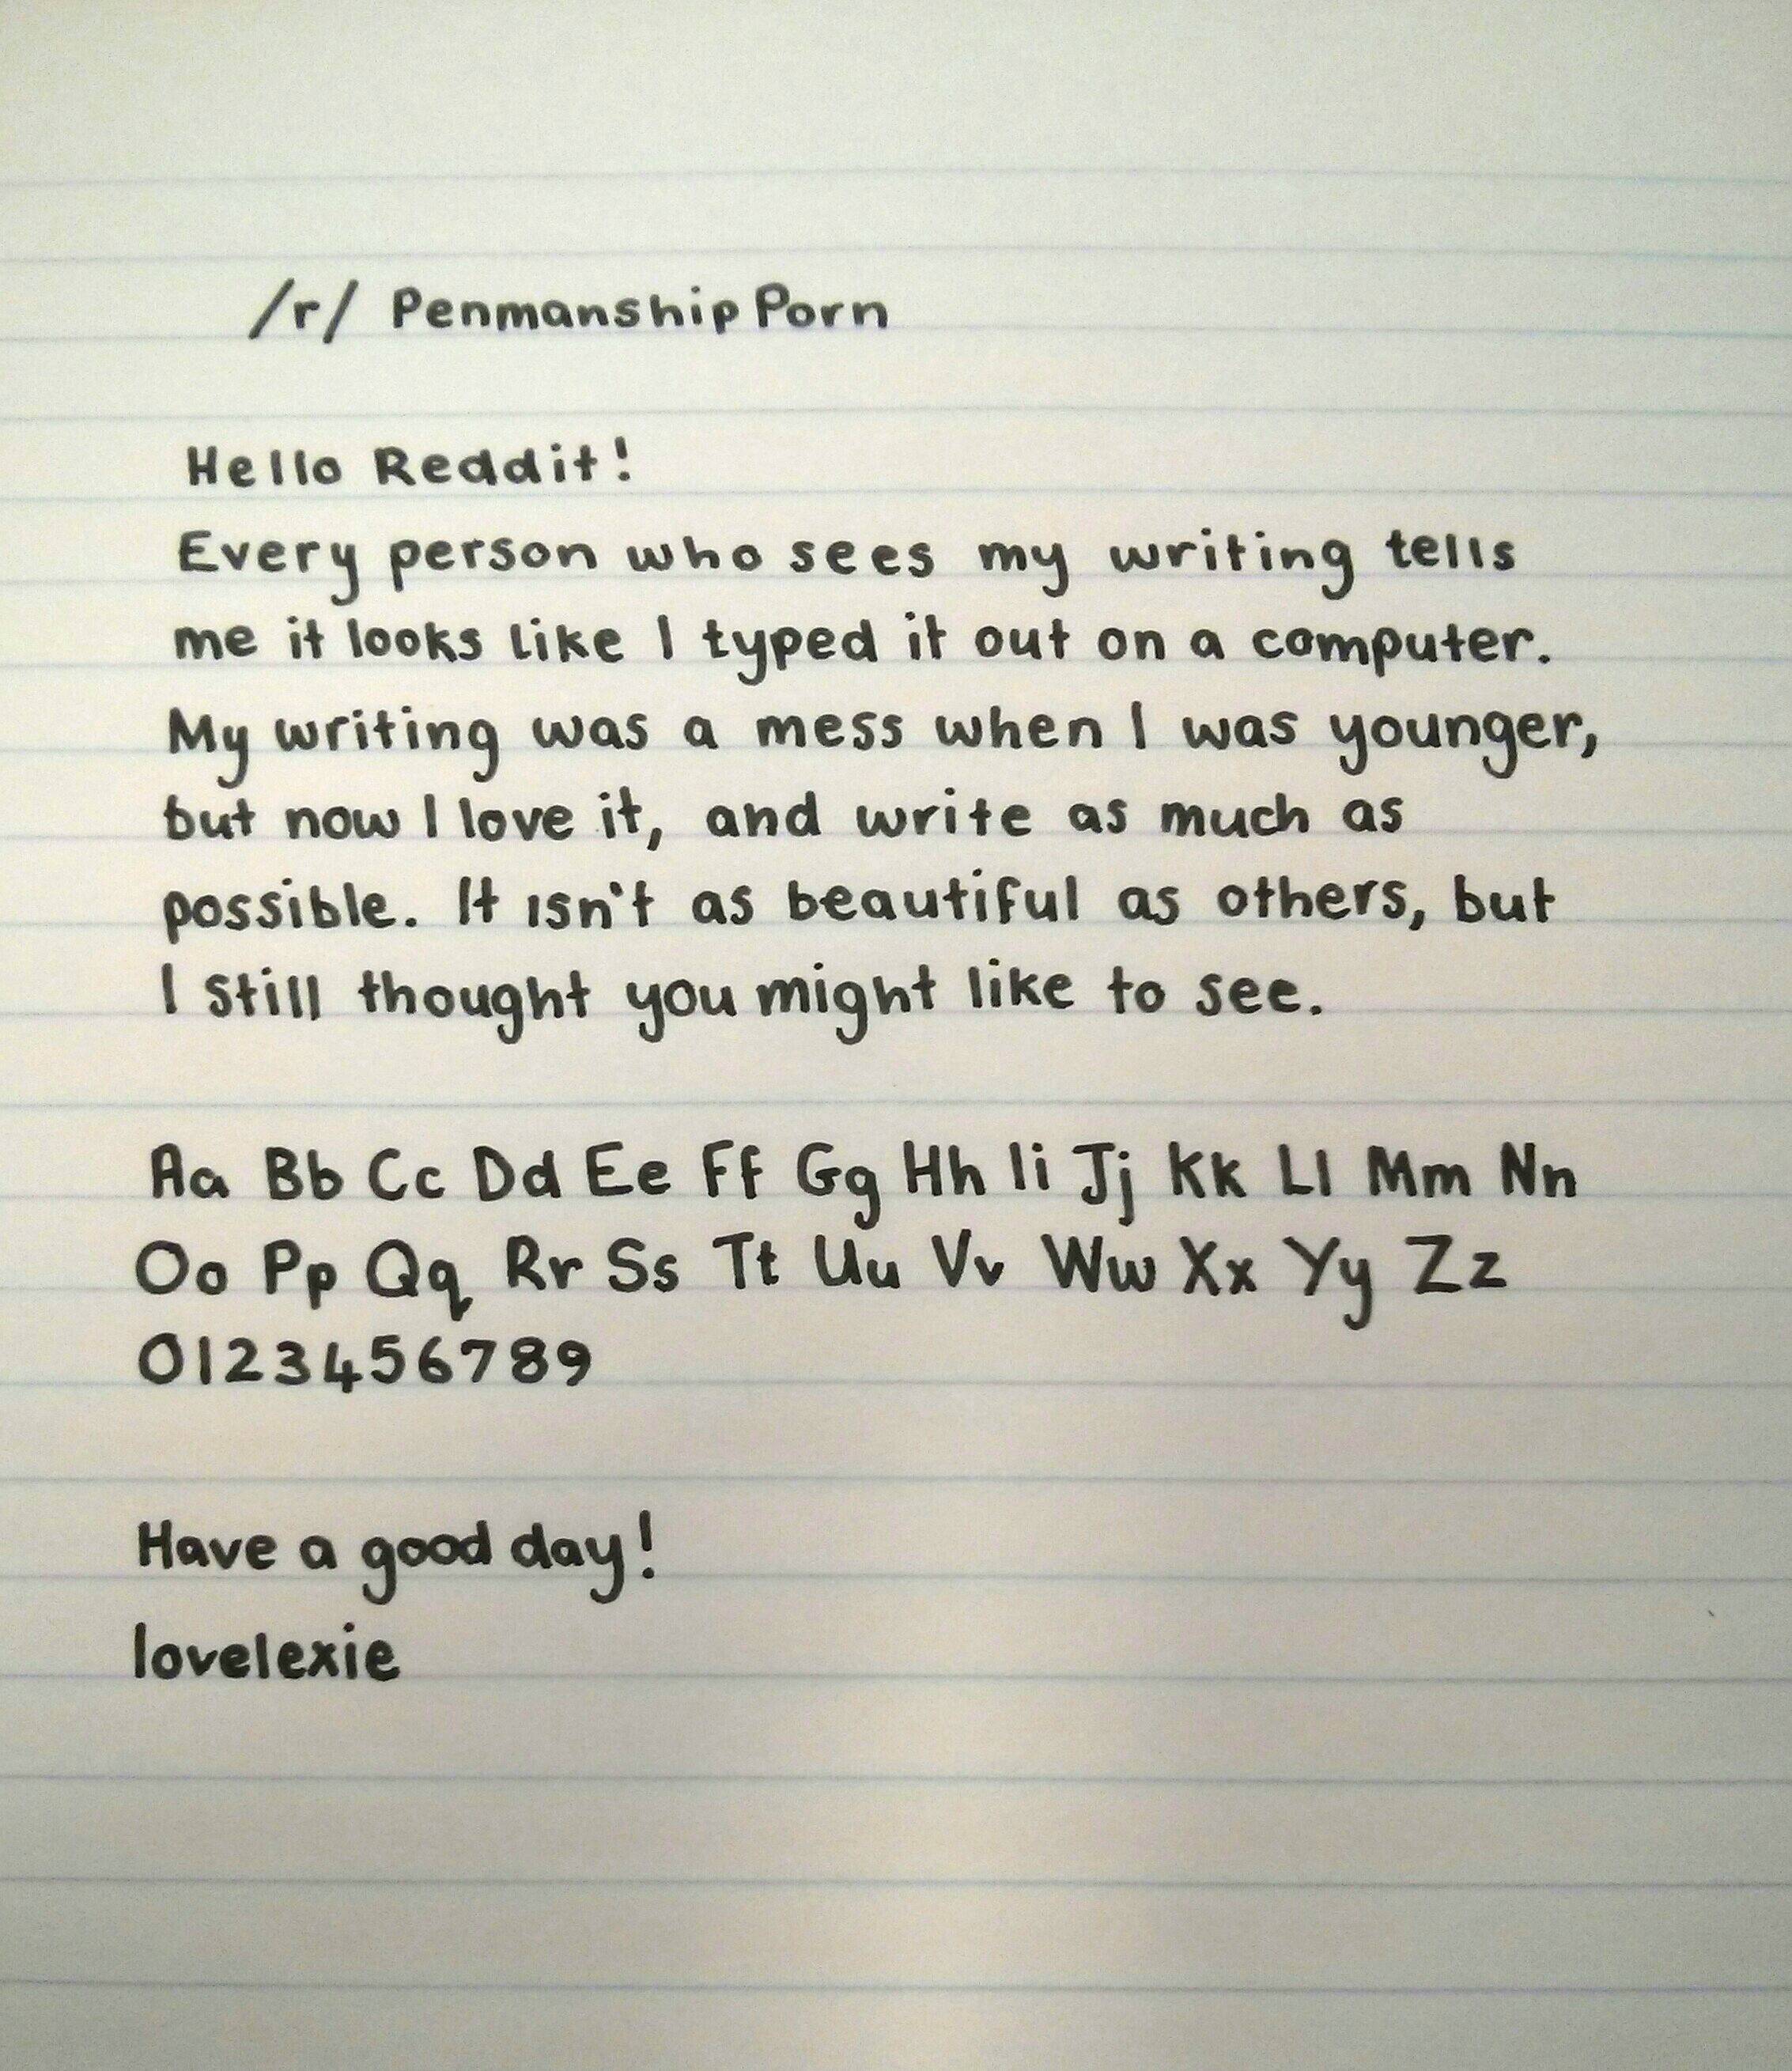 /r/ PenmanshipPorn
Hello Reddit!
Every person who sees my writing tells
me it looks like I typed it out on a computer.
My writing was a mess when I was younger,
but now I love it, and write as much as
possible. It isn't as beautiful as others, but
I still thought you might like to see.
Aa Bb Cc Dd Ee Ff Gg Hh Ii Jj Kk Ll Mm Nn
Oo Pp Qq Rr Ss Tt Uu Vv Ww Xx Yy Zz
0123456789
Have a good day!
lovelexie